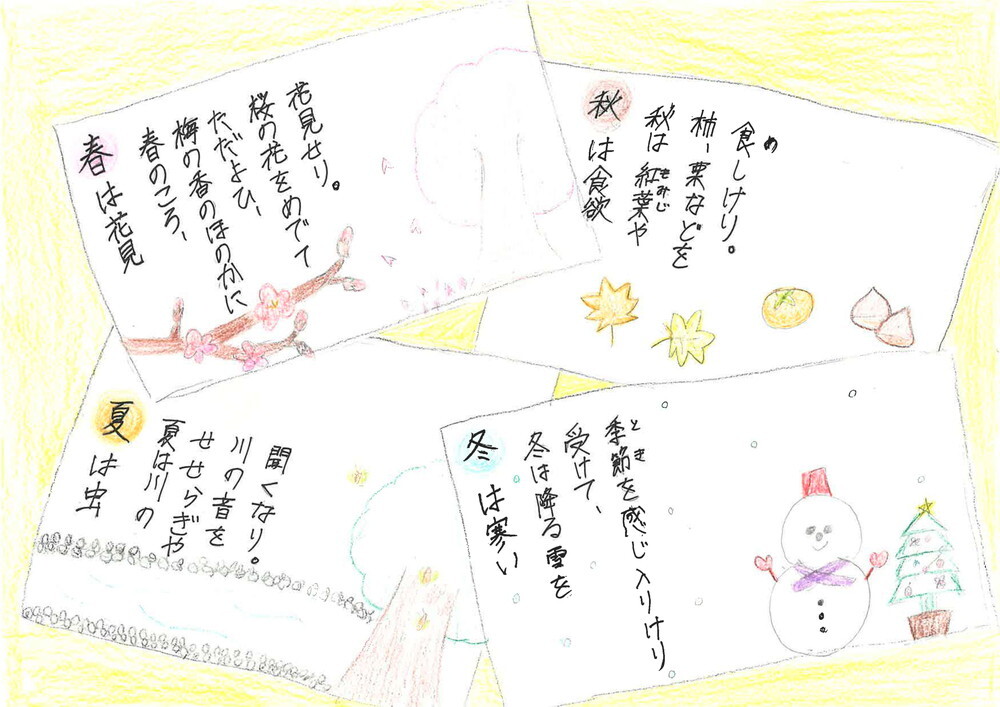 春は花見
春のころ、
梅の香のほのかに
ただよひ、
桜の花をめでて
花見せり。
秋は食欲
秋は紅葉や
もみじ
柿、栗などを
食しけり。
め
夏は虫
夏は川の
せせらぎや、
川の音を
聞くなり。
冬は寒い
冬は降る雪を
受けて、
季節を感じ入りけり。
とき